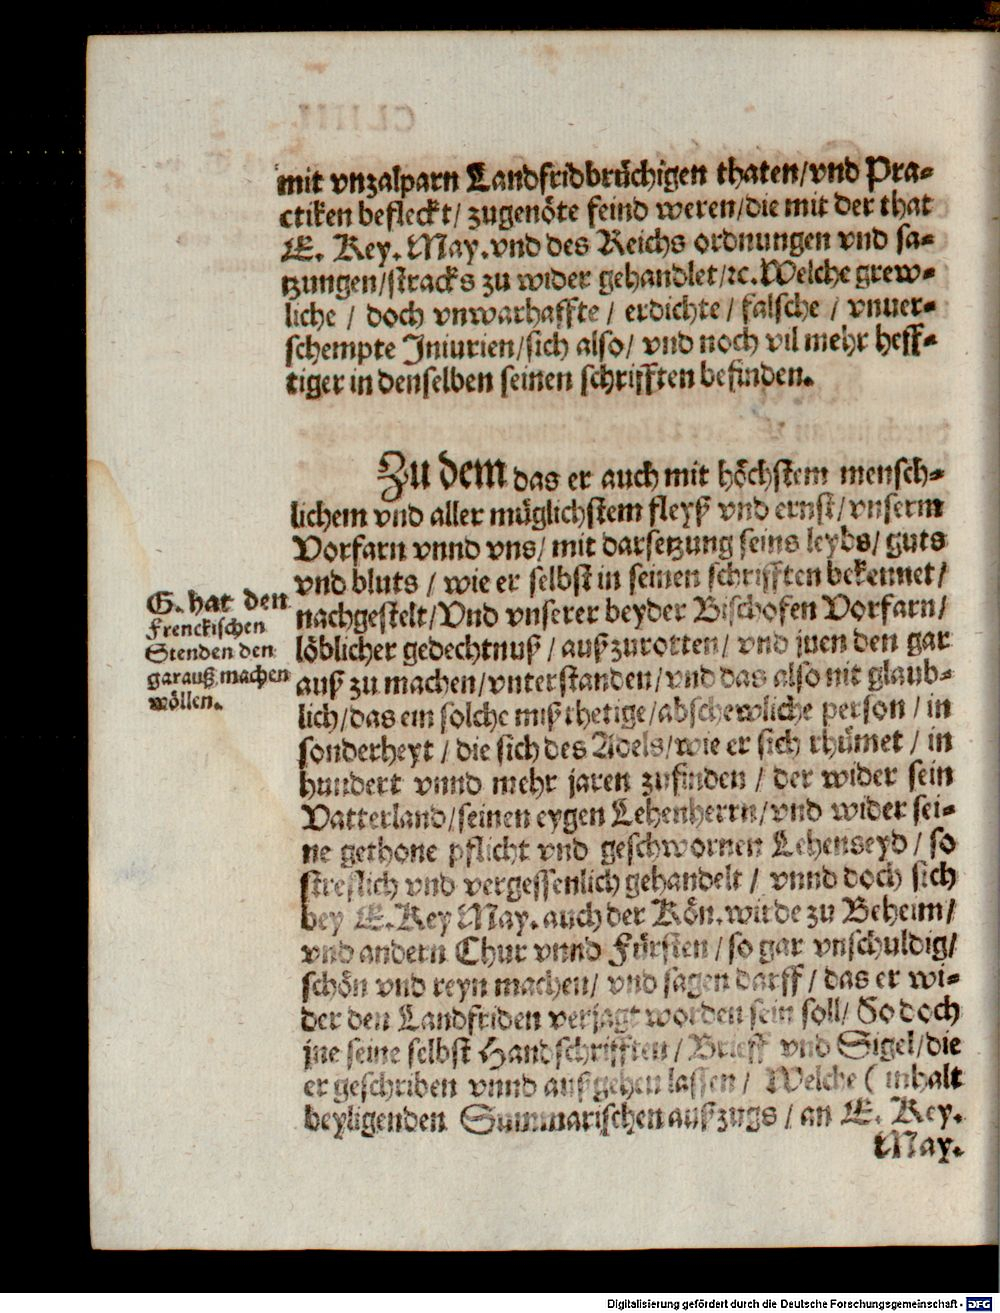 mit vnzalparn Landfridbrüchigen thaten/vnd Pra-
ctiken befleckt/ zugenöte feind weren/die mit der that
E. Key. May. vnd des Reichs ordnungen vnd sa-
tzungen/stracks zu wider gehandlet/ꝛc. Welche grew-
liche / doch vnwarhaffte / erdichte / falsche / vnuer-
schempte Iniurien/sich also/ vnd noch vil mehr heff-
tiger in denselben seinen schrifften befinden.
Zu dem das er auch mit höchstem mensch-
lichem vnd aller müglichstem fleyß vnd ernst/vnserm
Vorfarn vnnd vns/ mit darsetzung seins leybs/ guts
vnd bluts / wie er selbst in seinen schrifften bekennet/
nachgestelt/Vnd vnserer beyder Bischofen Vorfarn/
löblicher gedechtnuß / außzurotten/ vnd jnen den gar
auß zu machen/vnterstanden/vnd das also nit glaub-
lich/das ein solche mißthetige/abschewliche person / in
sonderheyt / die sich des Adels/wie er sich rhümet / in
hundert vnnd mehr jaren zufinden / der wider sein
Vatterland/seinen eygen Lehenherrn/vnd wider sei-
ne gethone pflicht vnd geschwornen Lehenseyd / so
streflich vnd vergessenlich gehandelt / vnnd doch sich
bey E. Key May. auch der Kön. wirde zu Beheim/
vnd andern Chur vnnd Fürsten / so gar vnschuldig/
schön vnd reyn machen/ vnd sagen darff / das er wi-
der den Landfriden verjagt worden sein soll/ So doch
jne seine selbst Handschrifften / Brieff vnd Sigel/die
er geschriben vnnd außgehen lassen / Welche ( inhalt
beyligenden Summarischen außzugs / an E. Key.
May.
G. hat den
Frenckischen
Stenden den
garauß machen
wöllen.
Digitalisierung gefördert durch die Deutsche Forschungsgemeinschaft - DFG